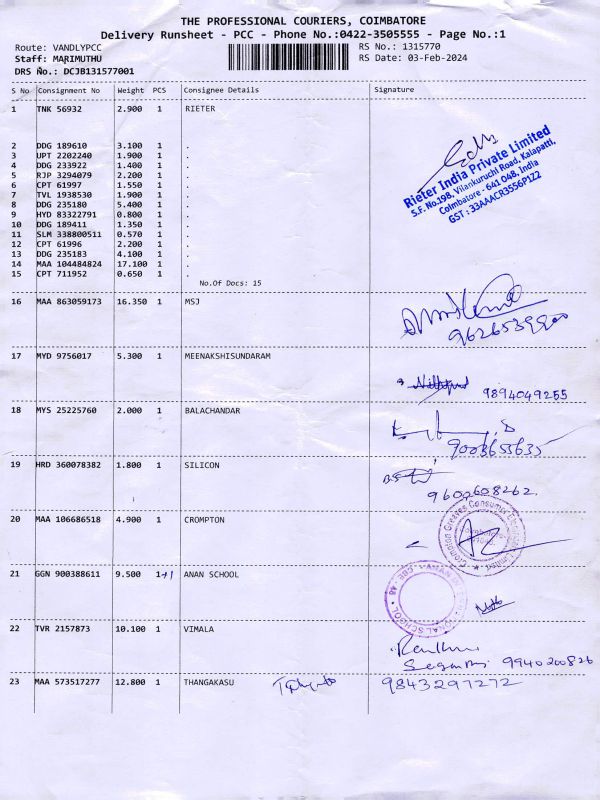 THE PROFESSIONAL COURIERS, COIMBATORE
Delivery Runsheet - PCC - Phone No.:0422-3505555 - Page No.:1
Route: VANDLYPCC RS No.: 1315770
Staff: MARIMUTHU RS Date: 03-Feb-2024
DRS No.: DCJB131577001
S No Consignment No Weight PCS Consignee Details Signature
1 TNK 56932 2.900 1 RIETER
Rieter India Private Limited
S.F. No.198, Vilankuruchi Road, Kalapatti,
Coimbatore - 641 048, India
GST : 33AAACR3556P1Z2
2 DDG 189610 3.100 1 .
3 UPT 2202240 1.900 1 .
4 DDG 233922 1.400 1 .
5 RJP 3294079 2.200 1 .
6 CPT 61997 1.550 1 .
7 TVL 1938530 1.900 1 .
8 DDG 235180 5.400 1 .
9 HYD 83322791 0.800 1 .
10 DDG 189411 1.350 1 .
11 SLM 338800511 0.570 1 .
12 CPT 61996 2.200 1 .
13 DDG 235183 4.100 1 .
14 MAA 104484824 17.100 1 .
15 CPT 711952 0.650 1 .
No.Of Docs: 15
16 MAA 863059173 16.350 1 MSJ
17 MYD 9756017 5.300 1 MEENAKSHISUNDARAM
9894049255
18 MYS 25225760 2.000 1 BALACHANDAR
9003653635
19 HRD 360078382 1.800 1 SILICON
9600608262
20 MAA 106686518 4.900 1 CROMPTON
Crompton Greaves Consumer Limited
21 GGN 900388611 9.500 1+1 ANAN SCHOOL
22 TVR 2157873 10.100 1 VIMALA
9940200826
23 MAA 573517277 12.800 1 THANGAKASU 9843297272